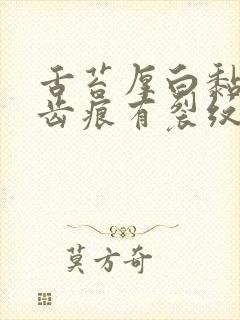 舌苔厚白黏
齿痕有裂纹
莫方奇